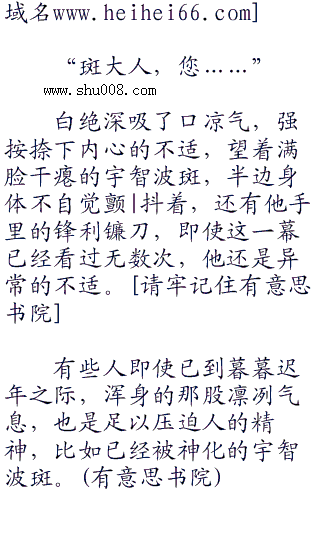 域名www.heihei66.com]
“斑大人，您……”
www.shu008.com
白绝深吸了口凉气，强
按捺下内心的不适，望着满
脸干瘪的宇智波斑，半边身
体不自觉颤|抖着，还有他手
里的锋利镰刀，即使这一幕
已经看过无数次，他还是异
常的不适。[请牢记住有意思
书院]
有些人即使已到暮暮迟
年之际，浑身的那股凛冽气
息，也是足以压迫人的精
神，比如已经被神化的宇智
波斑。(有意思书院)